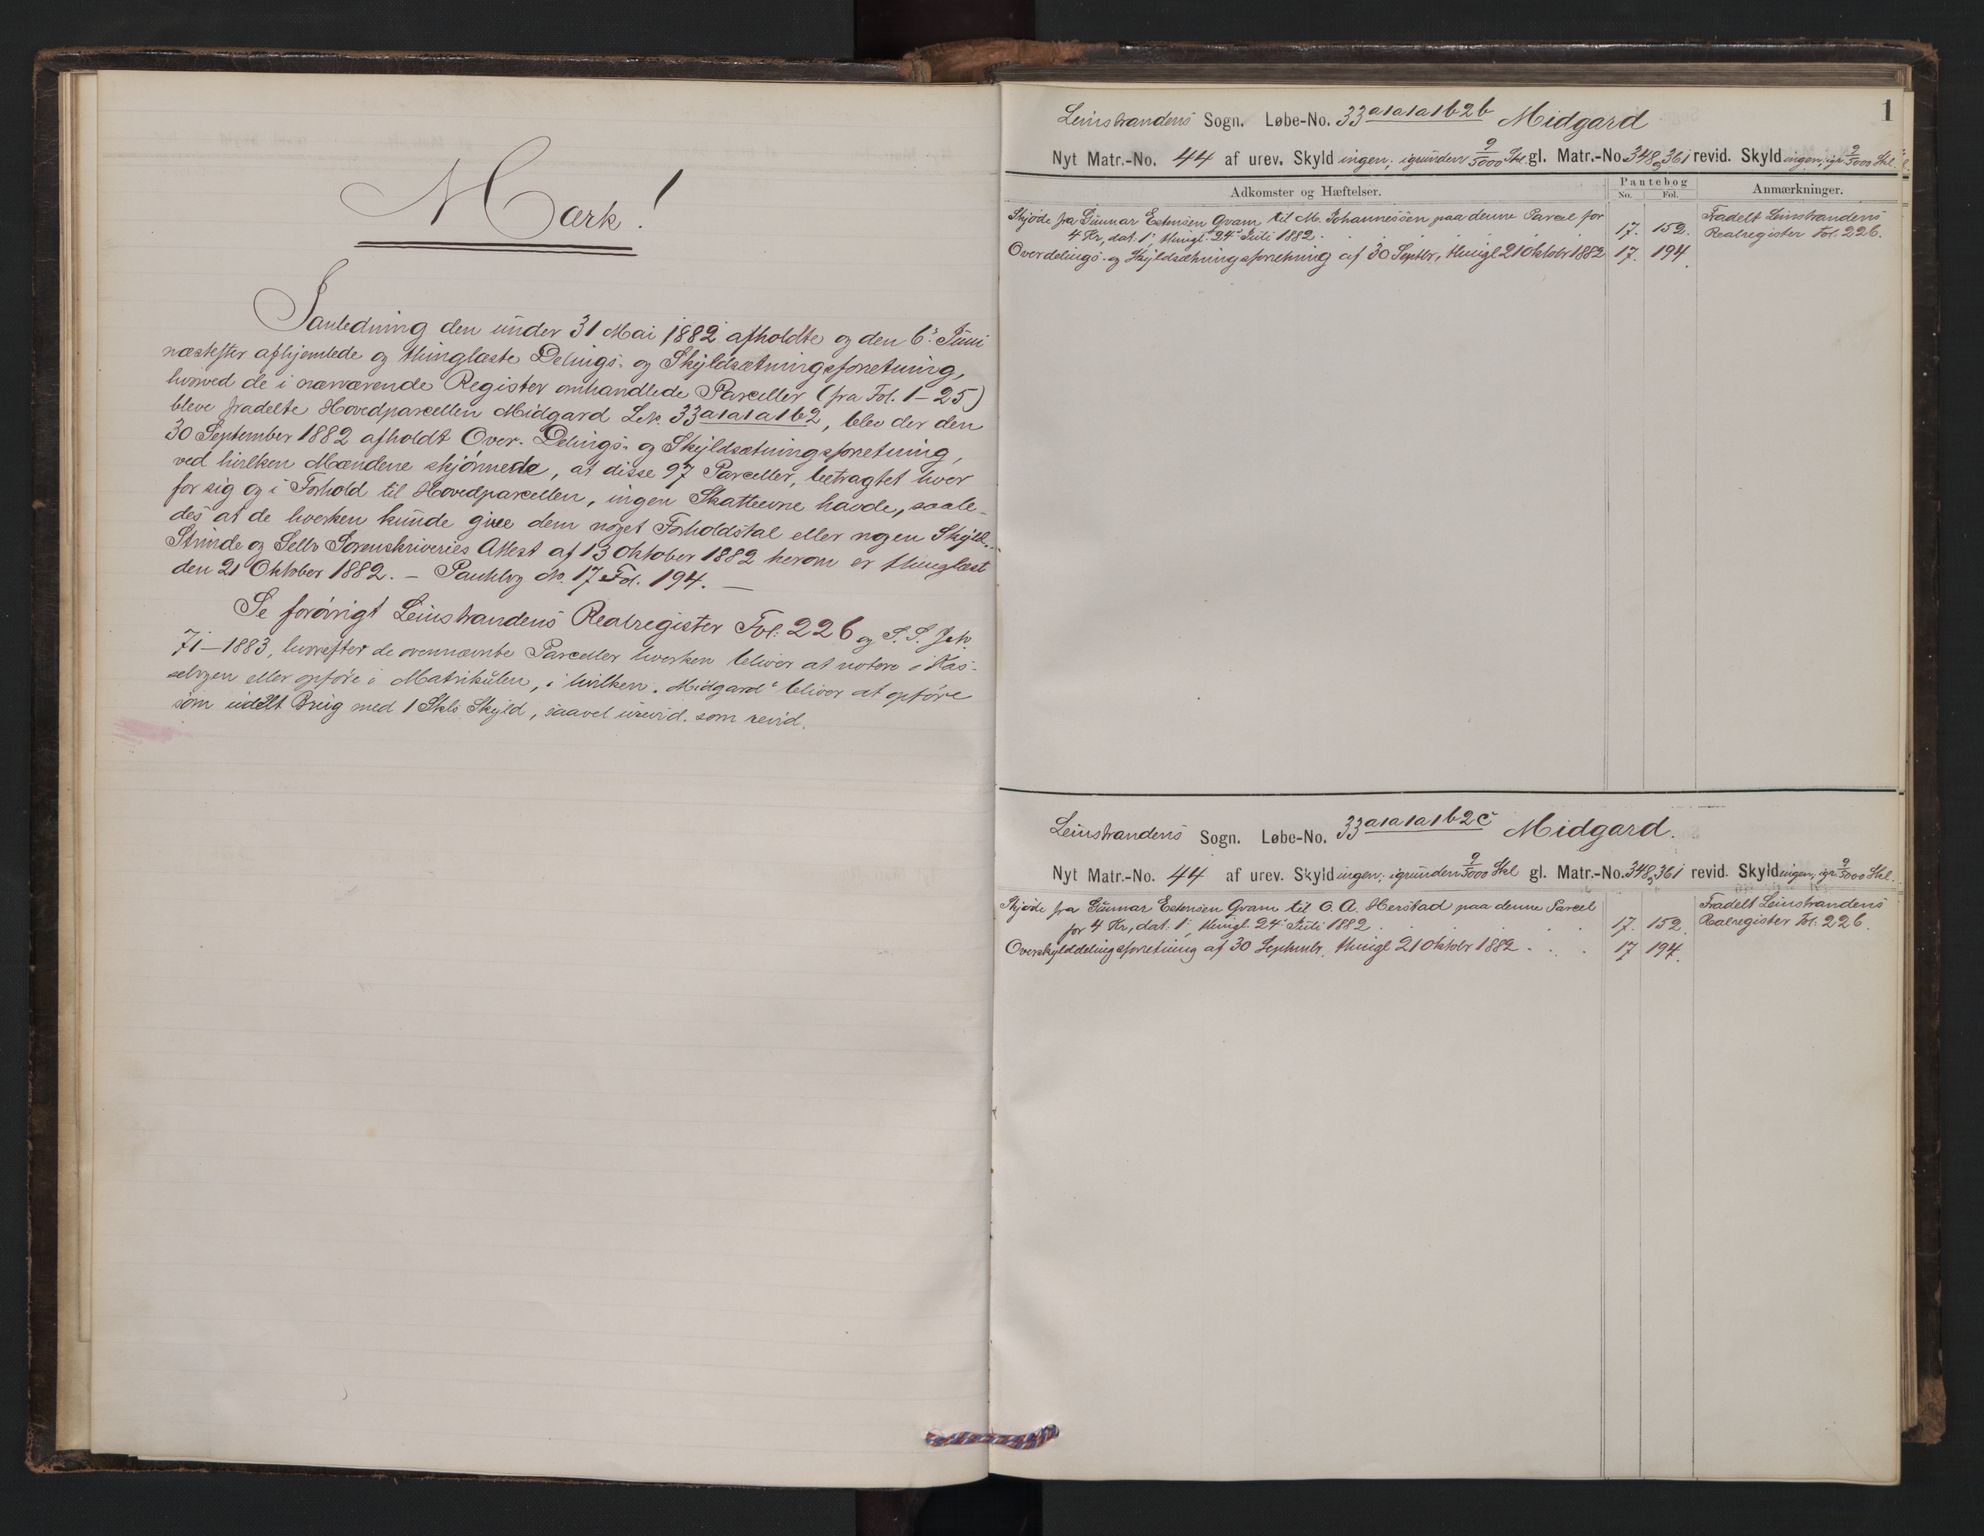 Mærk!
I anledning den under 31 Mai 1882 afholdte og den 6' Juni
næstefter afhjemlede og thinglæste Delings- og Skyldsætningsforretning,
hvorved de i nærværende Register omhandlede Parceller (fra Fol. 1-25)
bleve fradelte Hovedparcellen Midgard L.No. 33 a1a1a1b2, blev der den
30 September 1882 afholdt Over- Delings- og Skyldsætningsforretning,
ved hvilken Mændene skjønnede, at disse 97 Parceller, betragtet hver
for sig og i Forhold til Hovedparcellen, ingen Skatteevne havde, saale-
des at de hverken kunde give dem noget Forholdstal eller nogen Skyld.
Strinde og Selbo Sorenskriveries Attest af 13 Oktober 1882 herom er thinglæst
den 21 Oktober 1882. - Pantebog No. 17 Fol. 194. -
Se forøvrigt Leinstrandens Realregister Fol. 226 og S. S. J.No.
71-1883, hvorefter de ovennævnte Parceller hverken bliver at notere i Kas-
sebogen eller opføre i Matrikulen, i hvilken "Midgard" bliver at opføre
som udelt Brug med 1 Skls Skyld, saavel urevid. som revid.
1
Leinstrandens Sogn. Løbe-No. 33 a1a1a1b2b Midgard
Nyt Matr.-No. 44 af urev. Skyld ingen; igrunden 9/5000 Skl gl. Matr.-No. 348, 361 revid. Skyld ingen; igr. 9/5000 Skl.
Adkomster og Hæftelser. Pantebog No. Fol. Anmærkninger.
Skjøde fra Gunnar Estensen Qvam til M. Johannessen paa denne Parcel for
4 Kr, dat. 1', thingl. 24' Juli 1882 17. 152.
Overdelings- og Skyldsætningsforretning af 30 Septbr, thingl 21 Oktobr 1882 17. 194.
Fradelt Leinstrandens
Realregister Fol. 226.
Leinstrandens Sogn. Løbe-No. 33 a1a1a1b2c Midgard.
Nyt Matr.-No. 44 af urev. Skyld ingen; igrunden 9/5000 Skl gl. Matr.-No. 348, 361 revid. Skyld ingen; igr. 9/5000 Skl.
Skjøde fra Gunnar Estensen Qvam til O. A. Herstad paa denne Parcel
for 4 Kr, dat. 1', thingl. 24' Juli 1882 17. 152.
Overskylddelingsforretning af 30 Septembr, thingl 21 Oktobr 1882 17 194.
Fradelt Leinstrandens
Realregister Fol. 226.